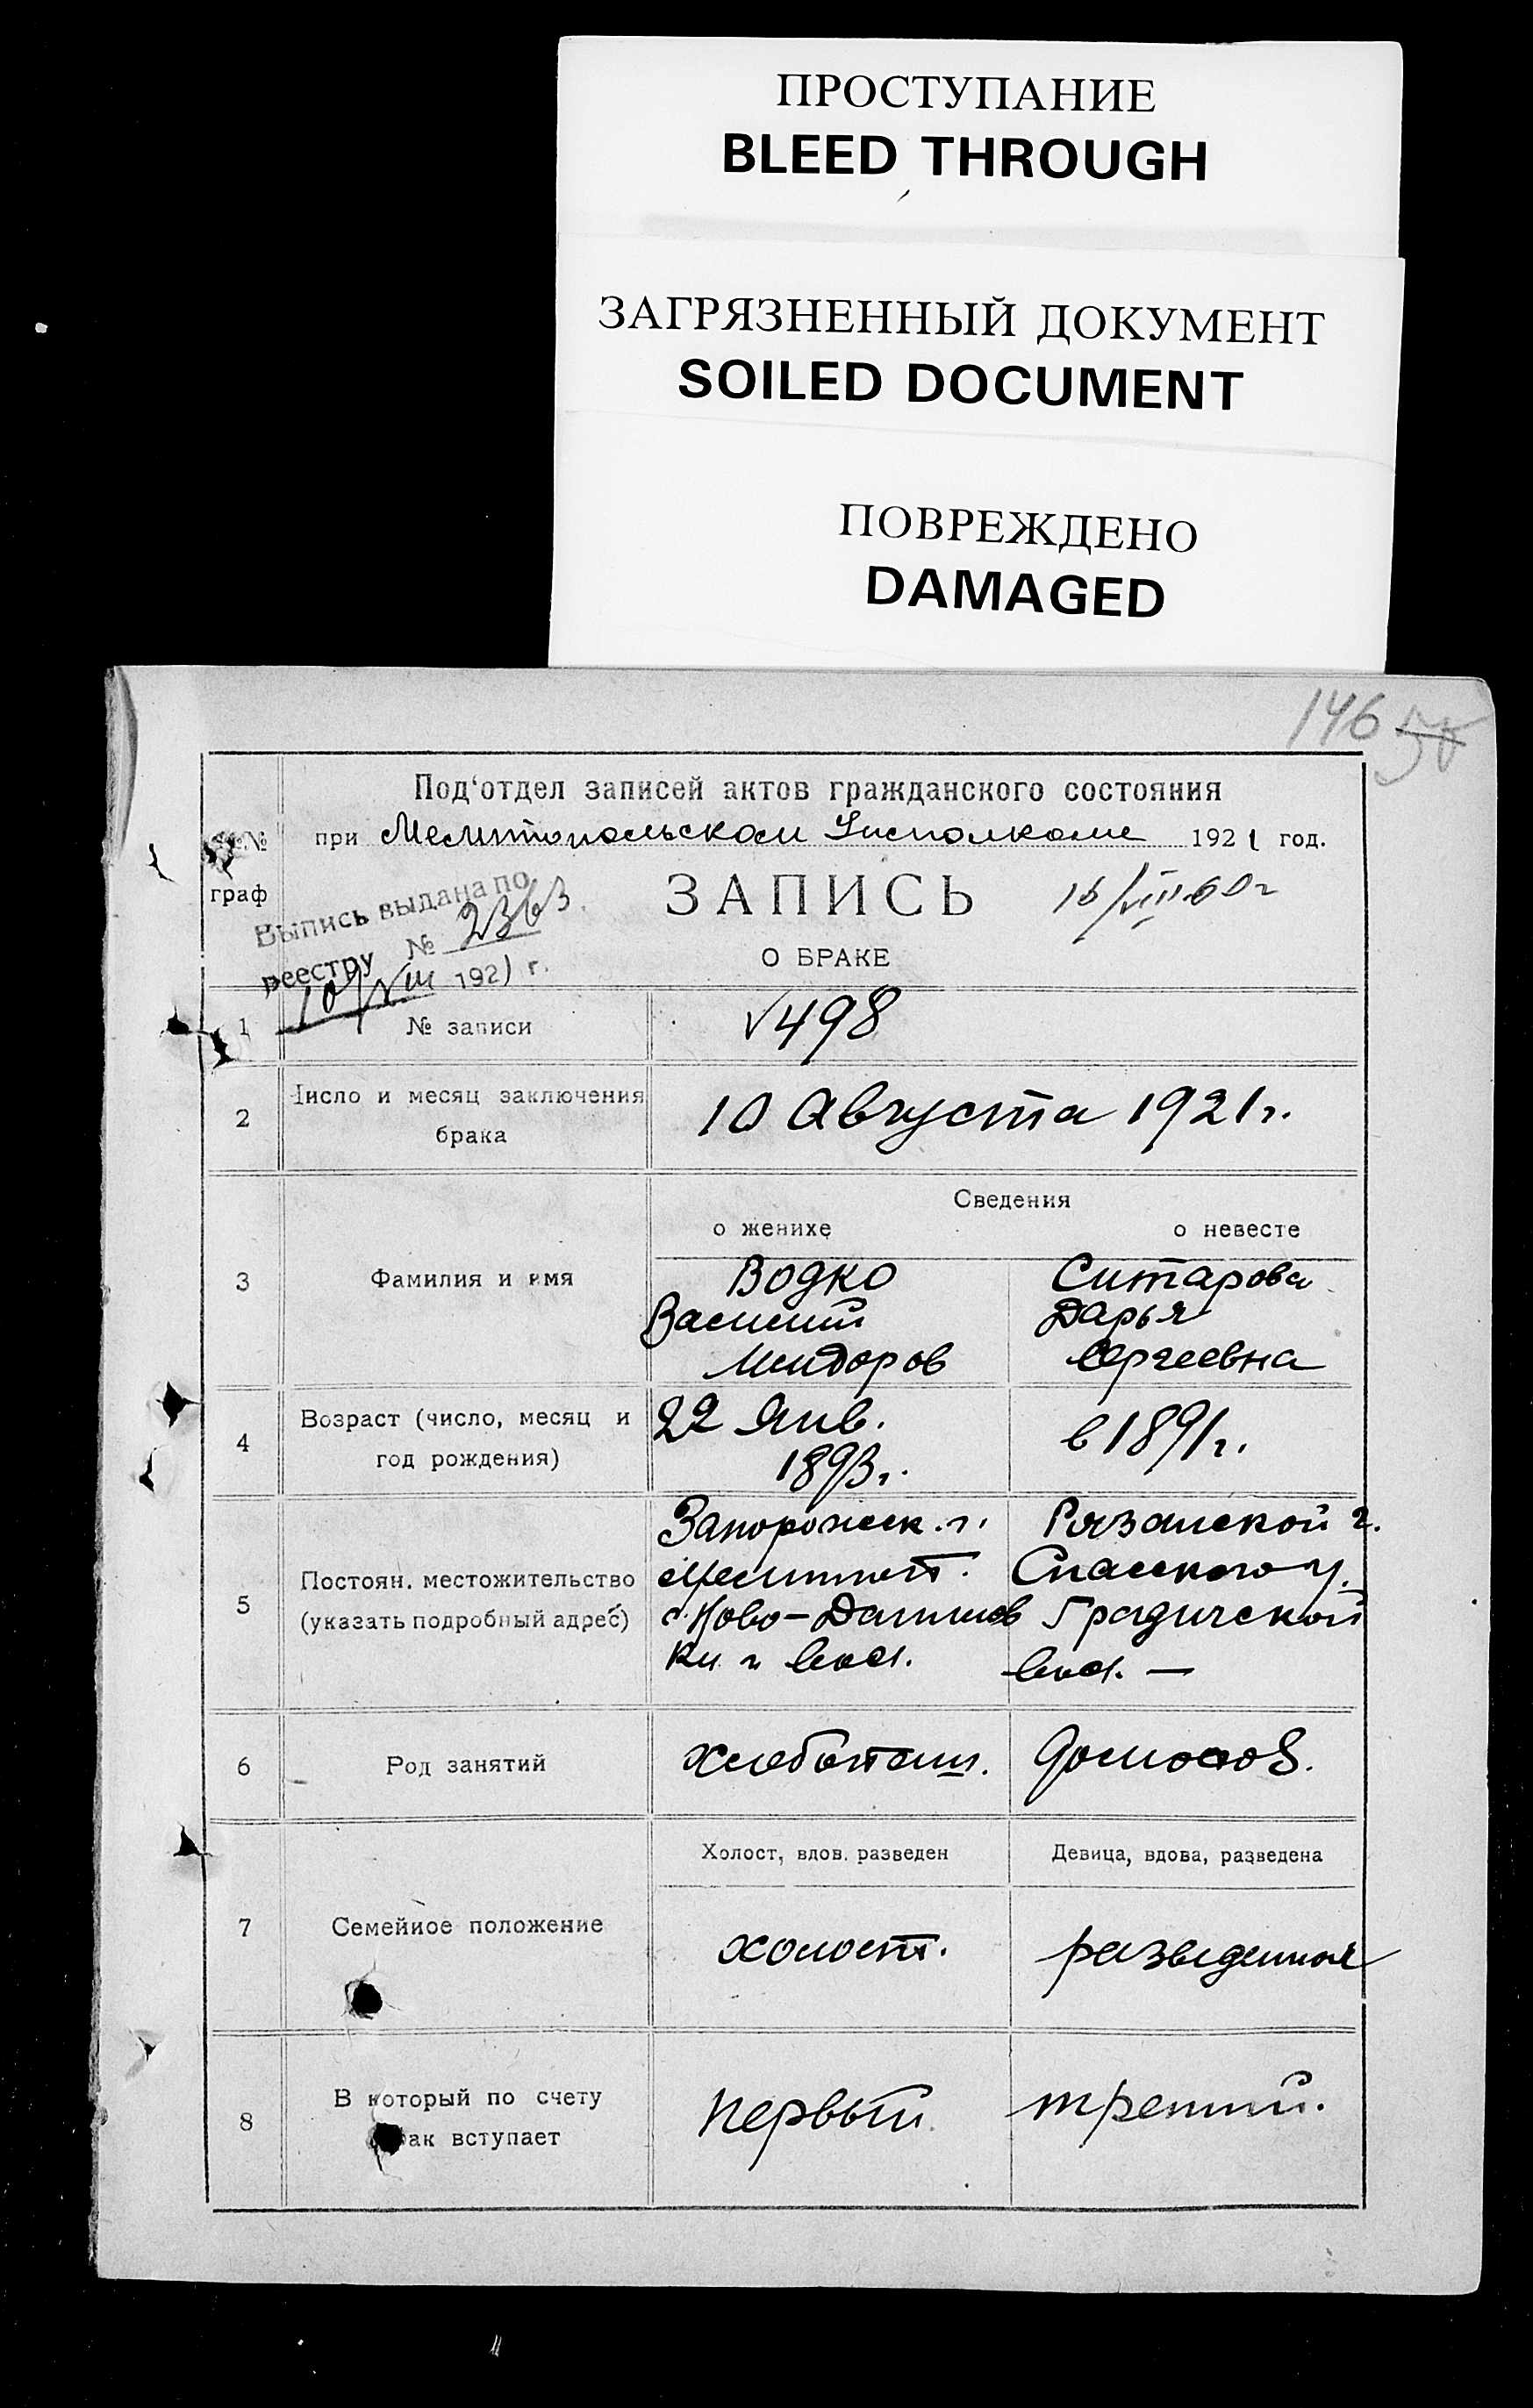 ПРОСТУПАНИЕ
BLEED THROUGH
ЗАГРЯЗНЕННЫЙ ДОКУМЕНТ
SOILED DOCUMENT
ПОВРЕЖДЕНО
DAMAGED
146
Под‘отдел записей актов гражданского состояния
при Мелитопольском Уисполкоме 1921 год.
№№
граф
ЗАПИСЬ
16/VIII-60 г
О БРАКЕ
Выпись выдана по
реестру № 2363
10/VIII 1921 г.
1 № записи 498
2 Число и месяц заключения
брака
10 Августа 1921 г.
Сведения
о женихе о невесте
3 Фамилия и имя
Водко Ситарова
Василий Дарья
Сергеевна
4 Возраст (число, месяц и
год рождения)
22 Янв. в 1891 г.
1893 г.
5 Постоян. местожительство
(указать подробный адрес)
Запорожск. г. Рязанской г.
Мелитоп. Спасского у.
с. Ново-Данилов
ки вол. вол. —
6 Род занятий хлебопаш. домохоз.
Холост, вдов. разведен Девица, вдова, разведена
7 Семейное положение холост. разведенная
8 В который по счету
брак вступает
первый. третий.